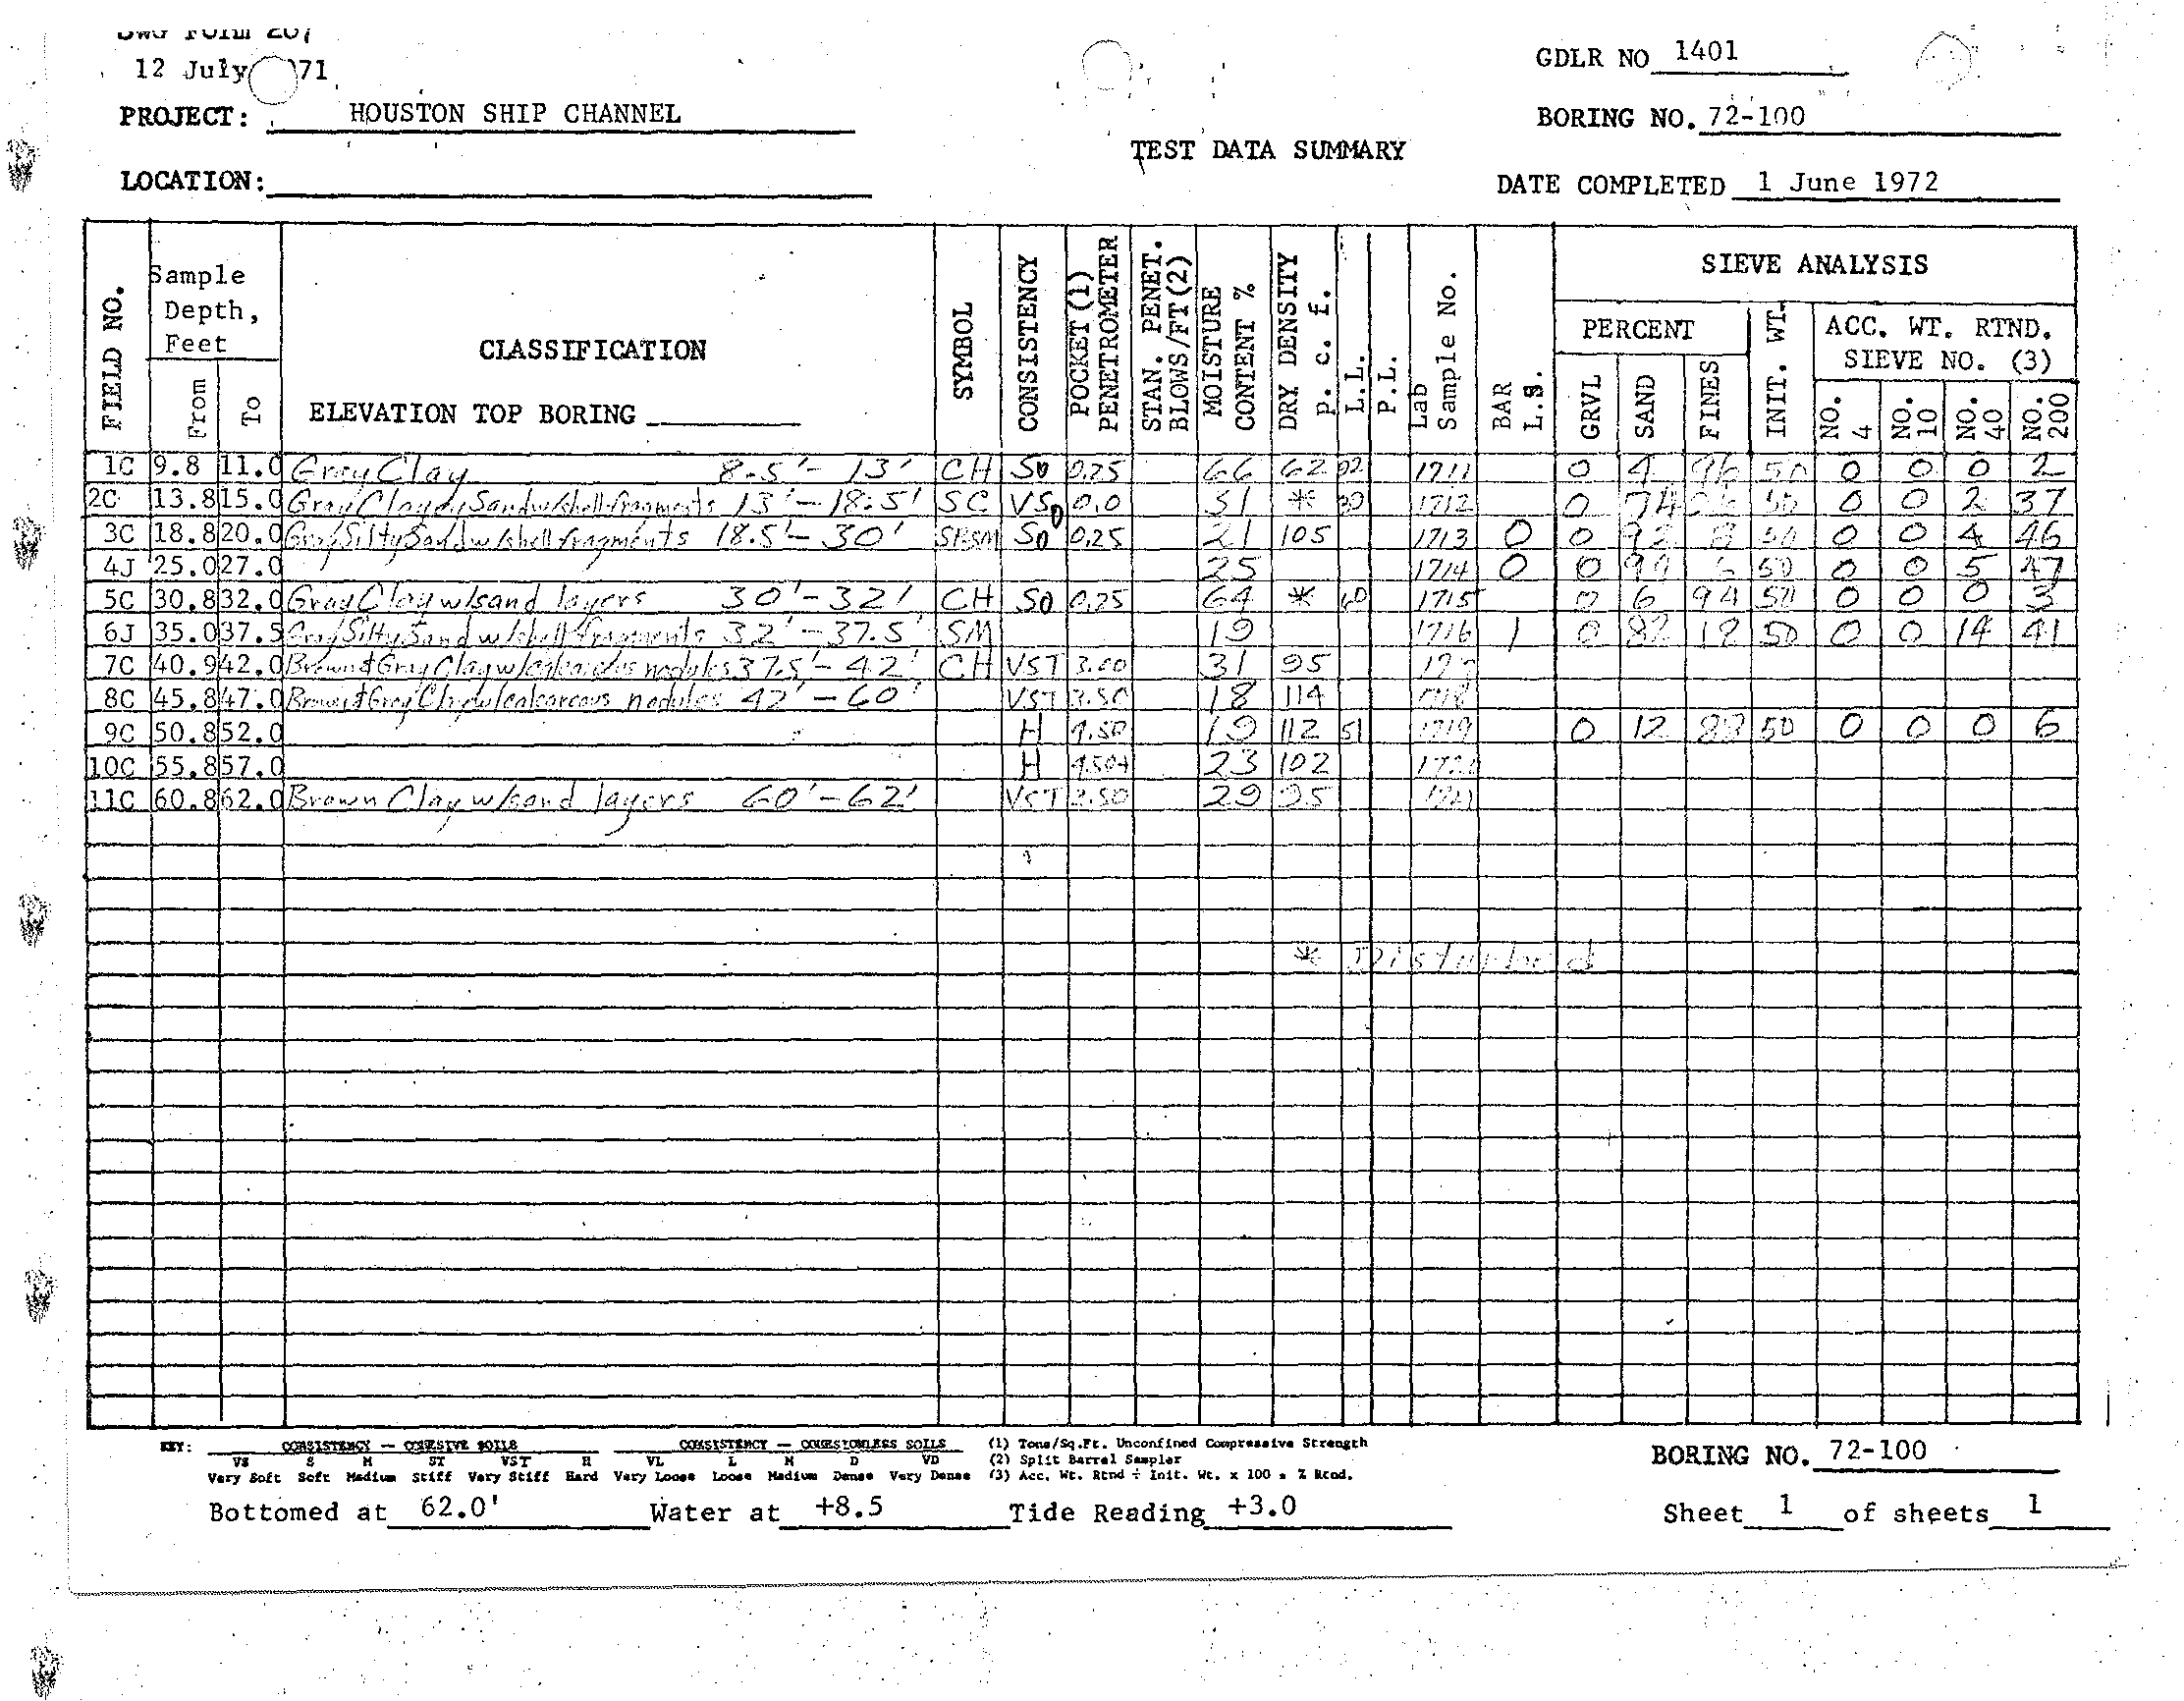 12 July 71
GDLR NO 1401
PROJECT: HOUSTON SHIP CHANNEL
BORING NO. 72-100
TEST DATA SUMMARY
LOCATION:
DATE COMPLETED 1 June 1972
FIELD NO.
Sample Depth, Feet
From
To
CLASSIFICATION
ELEVATION TOP BORING
SYMBOL
CONSISTENCY
POCKET (1) PENETROMETER
STAN. PENET. BLOWS/FT (2)
MOISTURE CONTENT %
DRY DENSITY p. c. f.
L.L.
P.L.
Lab Sample No.
BAR L.S.
SIEVE ANALYSIS
PERCENT
GRVL
SAND
FINES
INIT. WT.
ACC. WT. RTND.
SIEVE NO. (3)
NO. 4
NO. 10
NO. 40
NO. 200
1C 9.8 11.0 Gray Clay 8.5'- 13' CH SO 0.25 66 62 92 1711 0 4 96 50 0 0 0 2
2C 13.8 15.0 Gray Clayey Sand w/shell fragments 13'-18.5' SC VSO 0.0 31 * 1712 0 74 50 0 0 2 37
3C 18.8 20.0 Gray Silty Sand w/shell fragments 18.5'- 30' SPSM SO 0.25 21 105 1713 0 0 92 8 50 0 0 4 46
4J 25.0 27.0 25 1714 0 0 94 6 50 0 0 5 47
5C 30.8 32.0 Gray Clay w/sand layers 30'-32' CH SO 0.25 64 * 1715 0 6 94 50 0 0 0 3
6J 35.0 37.5 Gray Silty Sand w/shell fragments 32'-37.5' SM 19 1716 1 0 82 18 50 0 0 14 41
7C 40.9 42.0 Brown & Gray Clay w/calcareous nodules 37.5'- 42' CH VST 3.00 31 95
8C 45.8 47.0 Brown & Gray Clay w/calcareous nodules 42'-60' VST 3.50 18 114 1718
9C 50.8 52.0 H 4.50 19 112 51 1719 0 12 88 50 0 0 0 6
10C 55.8 57.0 H 4.50+ 23 102
11C 60.8 62.0 Brown Clay w/sand layers 60'-62' VST 29 95 1721
* Disturbed
KEY: CONSISTENCY — COHESIVE SOILS CONSISTENCY — COHESIONLESS SOILS (1) Tons/Sq.Ft. Unconfined Compressive Strength
VS S M ST VST H VL L M D VD (2) Split Barrel Sampler
Very Soft Soft Medium Stiff Very Stiff Hard Very Loose Loose Medium Dense Very Dense (3) Acc. Wt. Rtnd ÷ Init. Wt. x 100 = % Rtnd.
BORING NO. 72-100
Bottomed at 62.0' Water at +8.5 Tide Reading +3.0 Sheet 1 of sheets 1